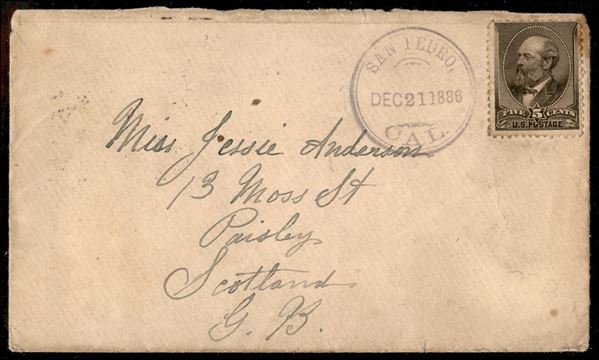 SAN PEDRO,
DEC 21 1886
CAL.
FIVE 5 CENTS
U.S. POSTAGE
Miss Jessie Anderson
13 Moss St
Paisley
Scotland
G. B.